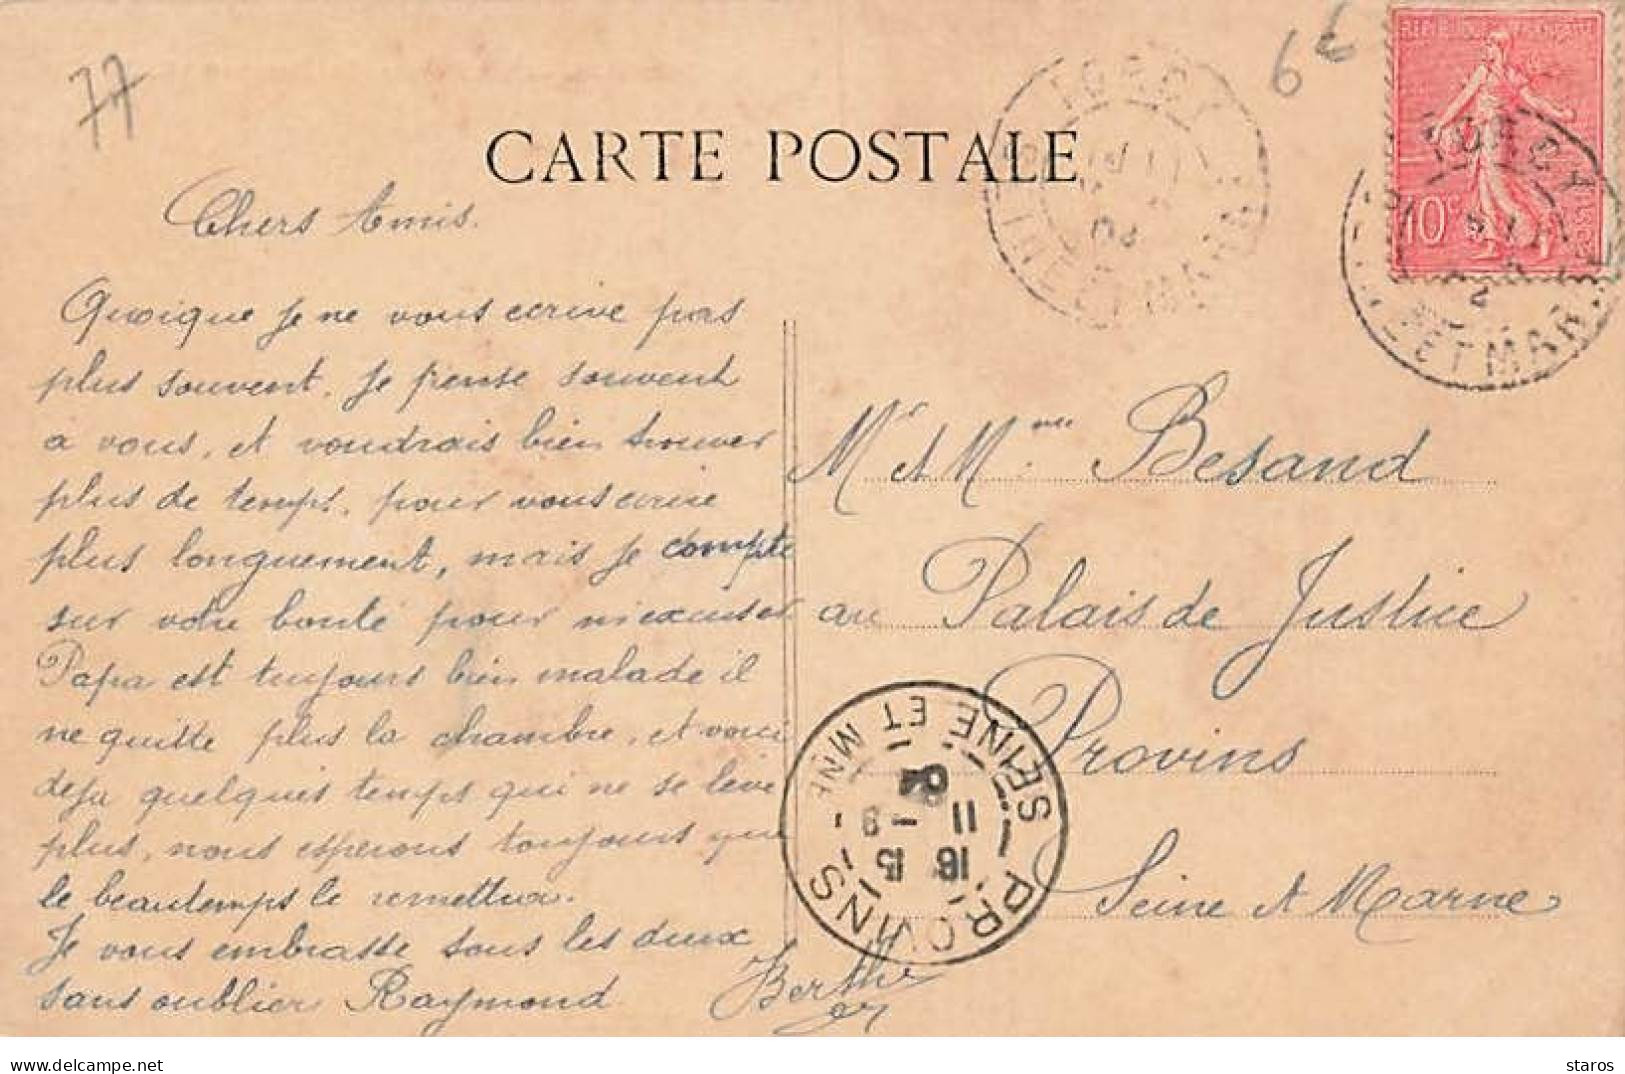 77
6€
REPUBLIQUE FRANÇAISE
10c
TORCY
CARTE POSTALE
Chers Amis.
Quoique je ne vous ecrive pas
plus souvent, je pense souvent
a vous, et voudrais bien trouver
plus de temps, pour vous ecrire
plus longuement, mais je compte
sur votre bonté pour m'excuser
Papa est toujours bien malade il
ne quitte plus la chambre, et voici
deja quelques temps qui ne se lève
plus, nous esperons toujours que
le beautemps le remettra.
Je vous embrasse tous les deux
sans oublier Raymond
Berthe
Mr et Mme Besand
au Palais de Justice
Provins
Seine et Marne
PROVINS
SEINE ET MNE
16 15
11 - 3
04
Marie-77
staros